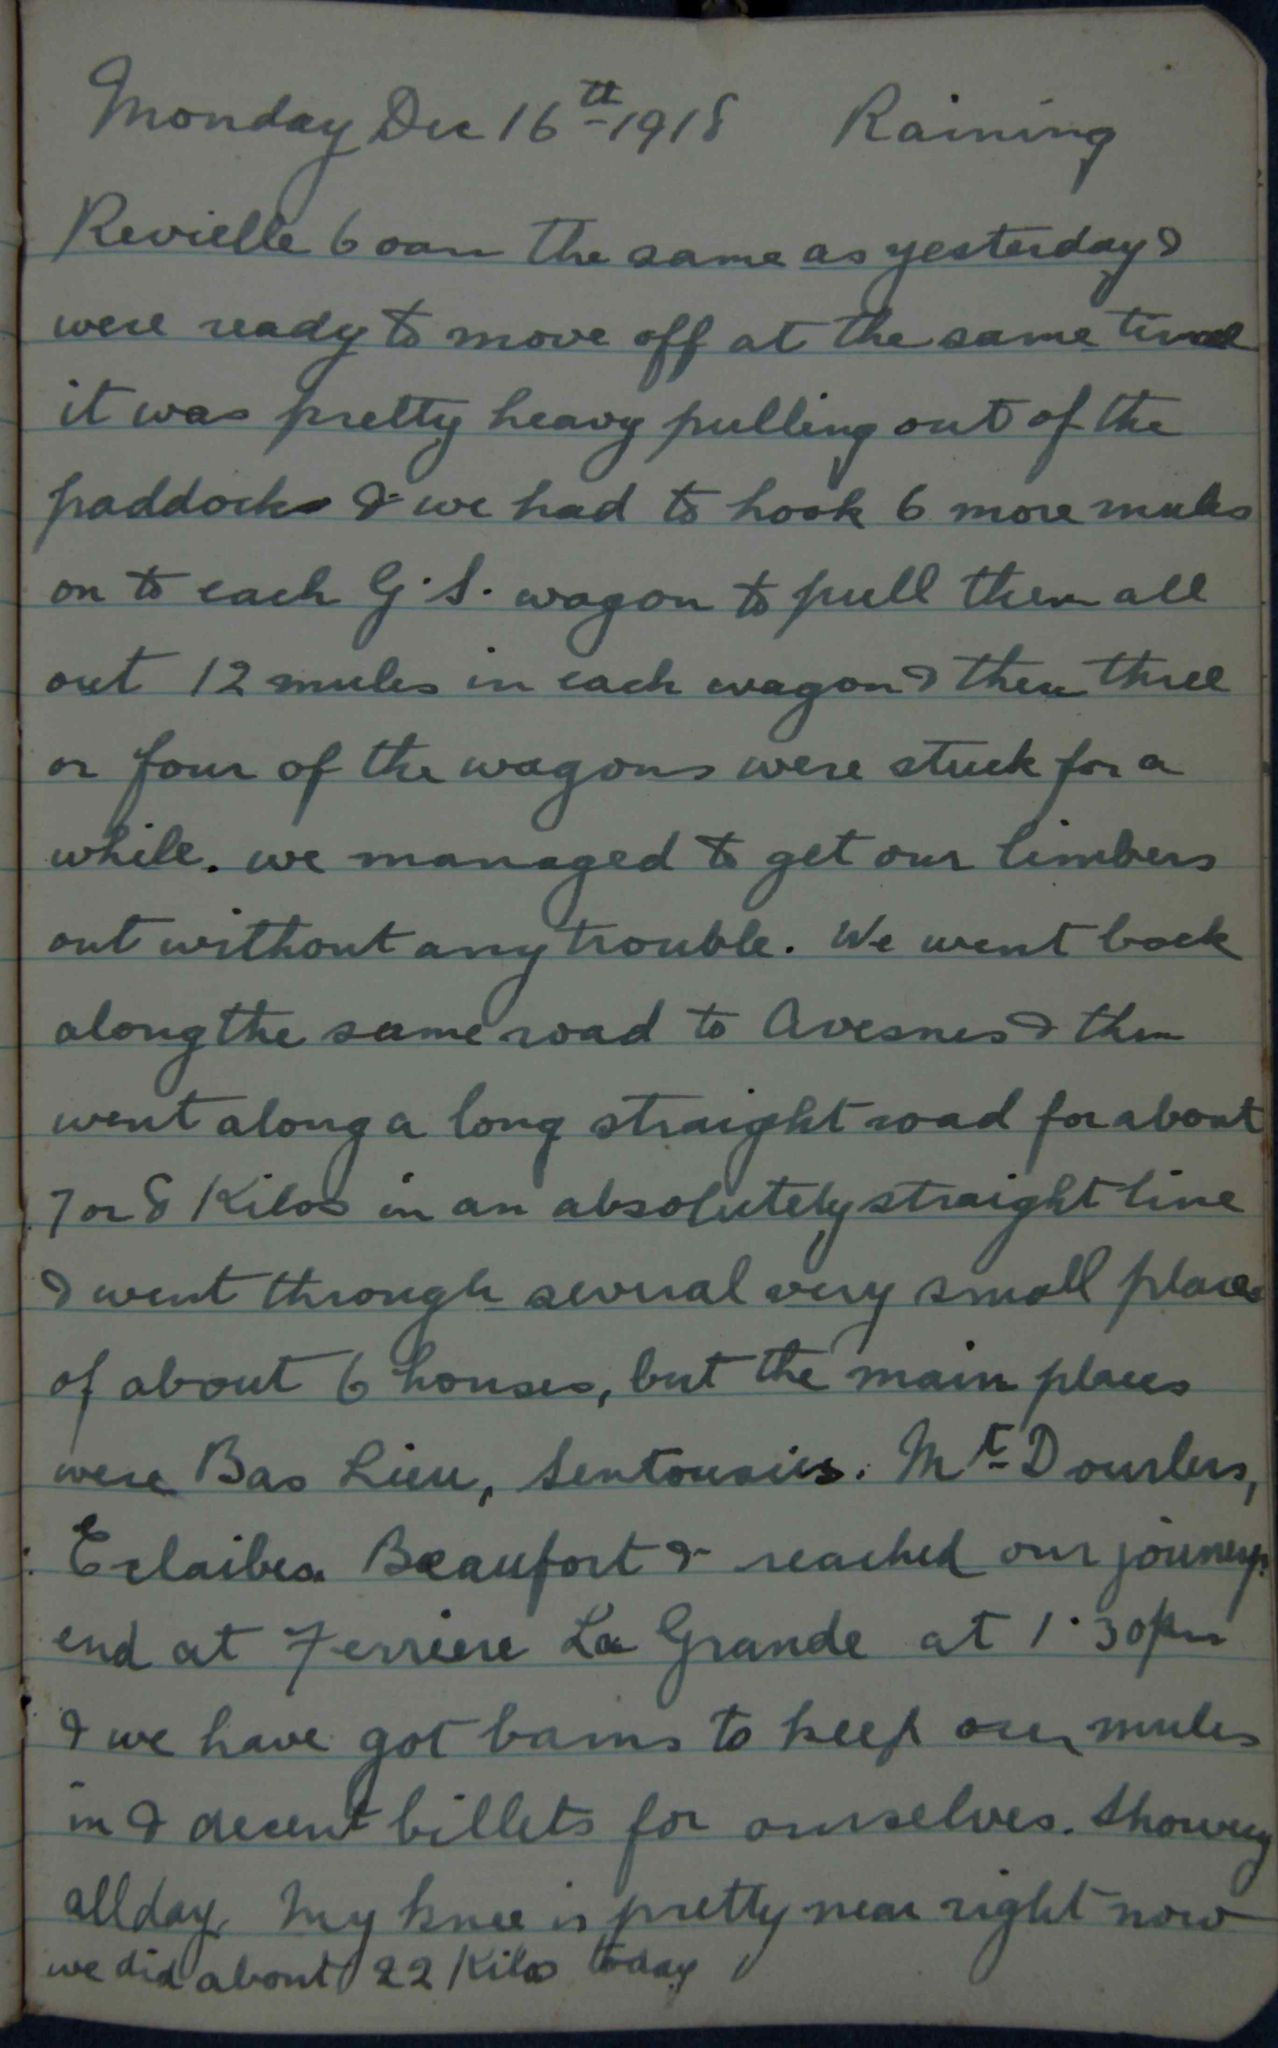 Monday Dec 16th 1918 Raining
Revielle 6 am the same as yesterday &
were ready to move off at the same time
it was pretty heavy pulling out of the
paddocks & we had to hook 6 more mules
on to each G.S. wagon to pull them all
out 12 mules in each wagon & then three
or four of the wagons were stuck for a
while. we managed to get our limbers
out without any trouble. We went back
along the same road to Avesnes & then
went along a long straight road for about
7 or 8 Kilos in an absolutely straight line
& went through several very small places
of about 6 houses, but the main places
were Bas Lieu, Mt Dourlers,
Eclaibes. Beaufort & reached our journeys
end at Ferriere La Grande at 1.30 pm
& we have got barns to keep our mules
in & decent billets for ourselves. Showery
all day. My knee is pretty near right now
we did about 22 Kilos today